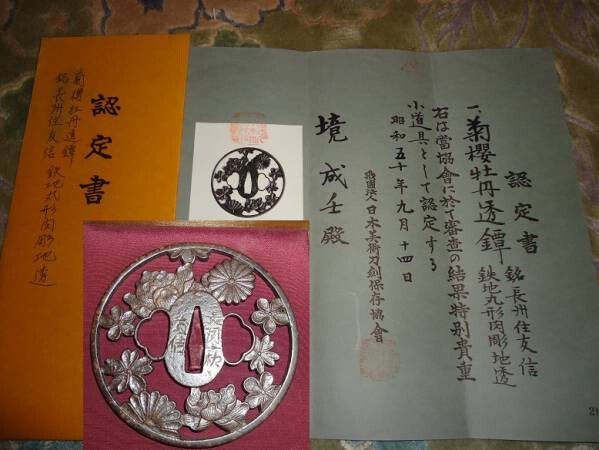 認定書
菊櫻牡丹透鐔
銘長州住友信 鉄地丸形肉彫地透
認定書
一、菊櫻牡丹透鐔 銘長州住友信
鉄地丸形肉彫地透
右は當協會に於て審査の結果特別貴重
小道具として認定する
昭和五十年九月十四日
財団法人日本美術刀剣保存協會
境成壬殿
長州住
友信